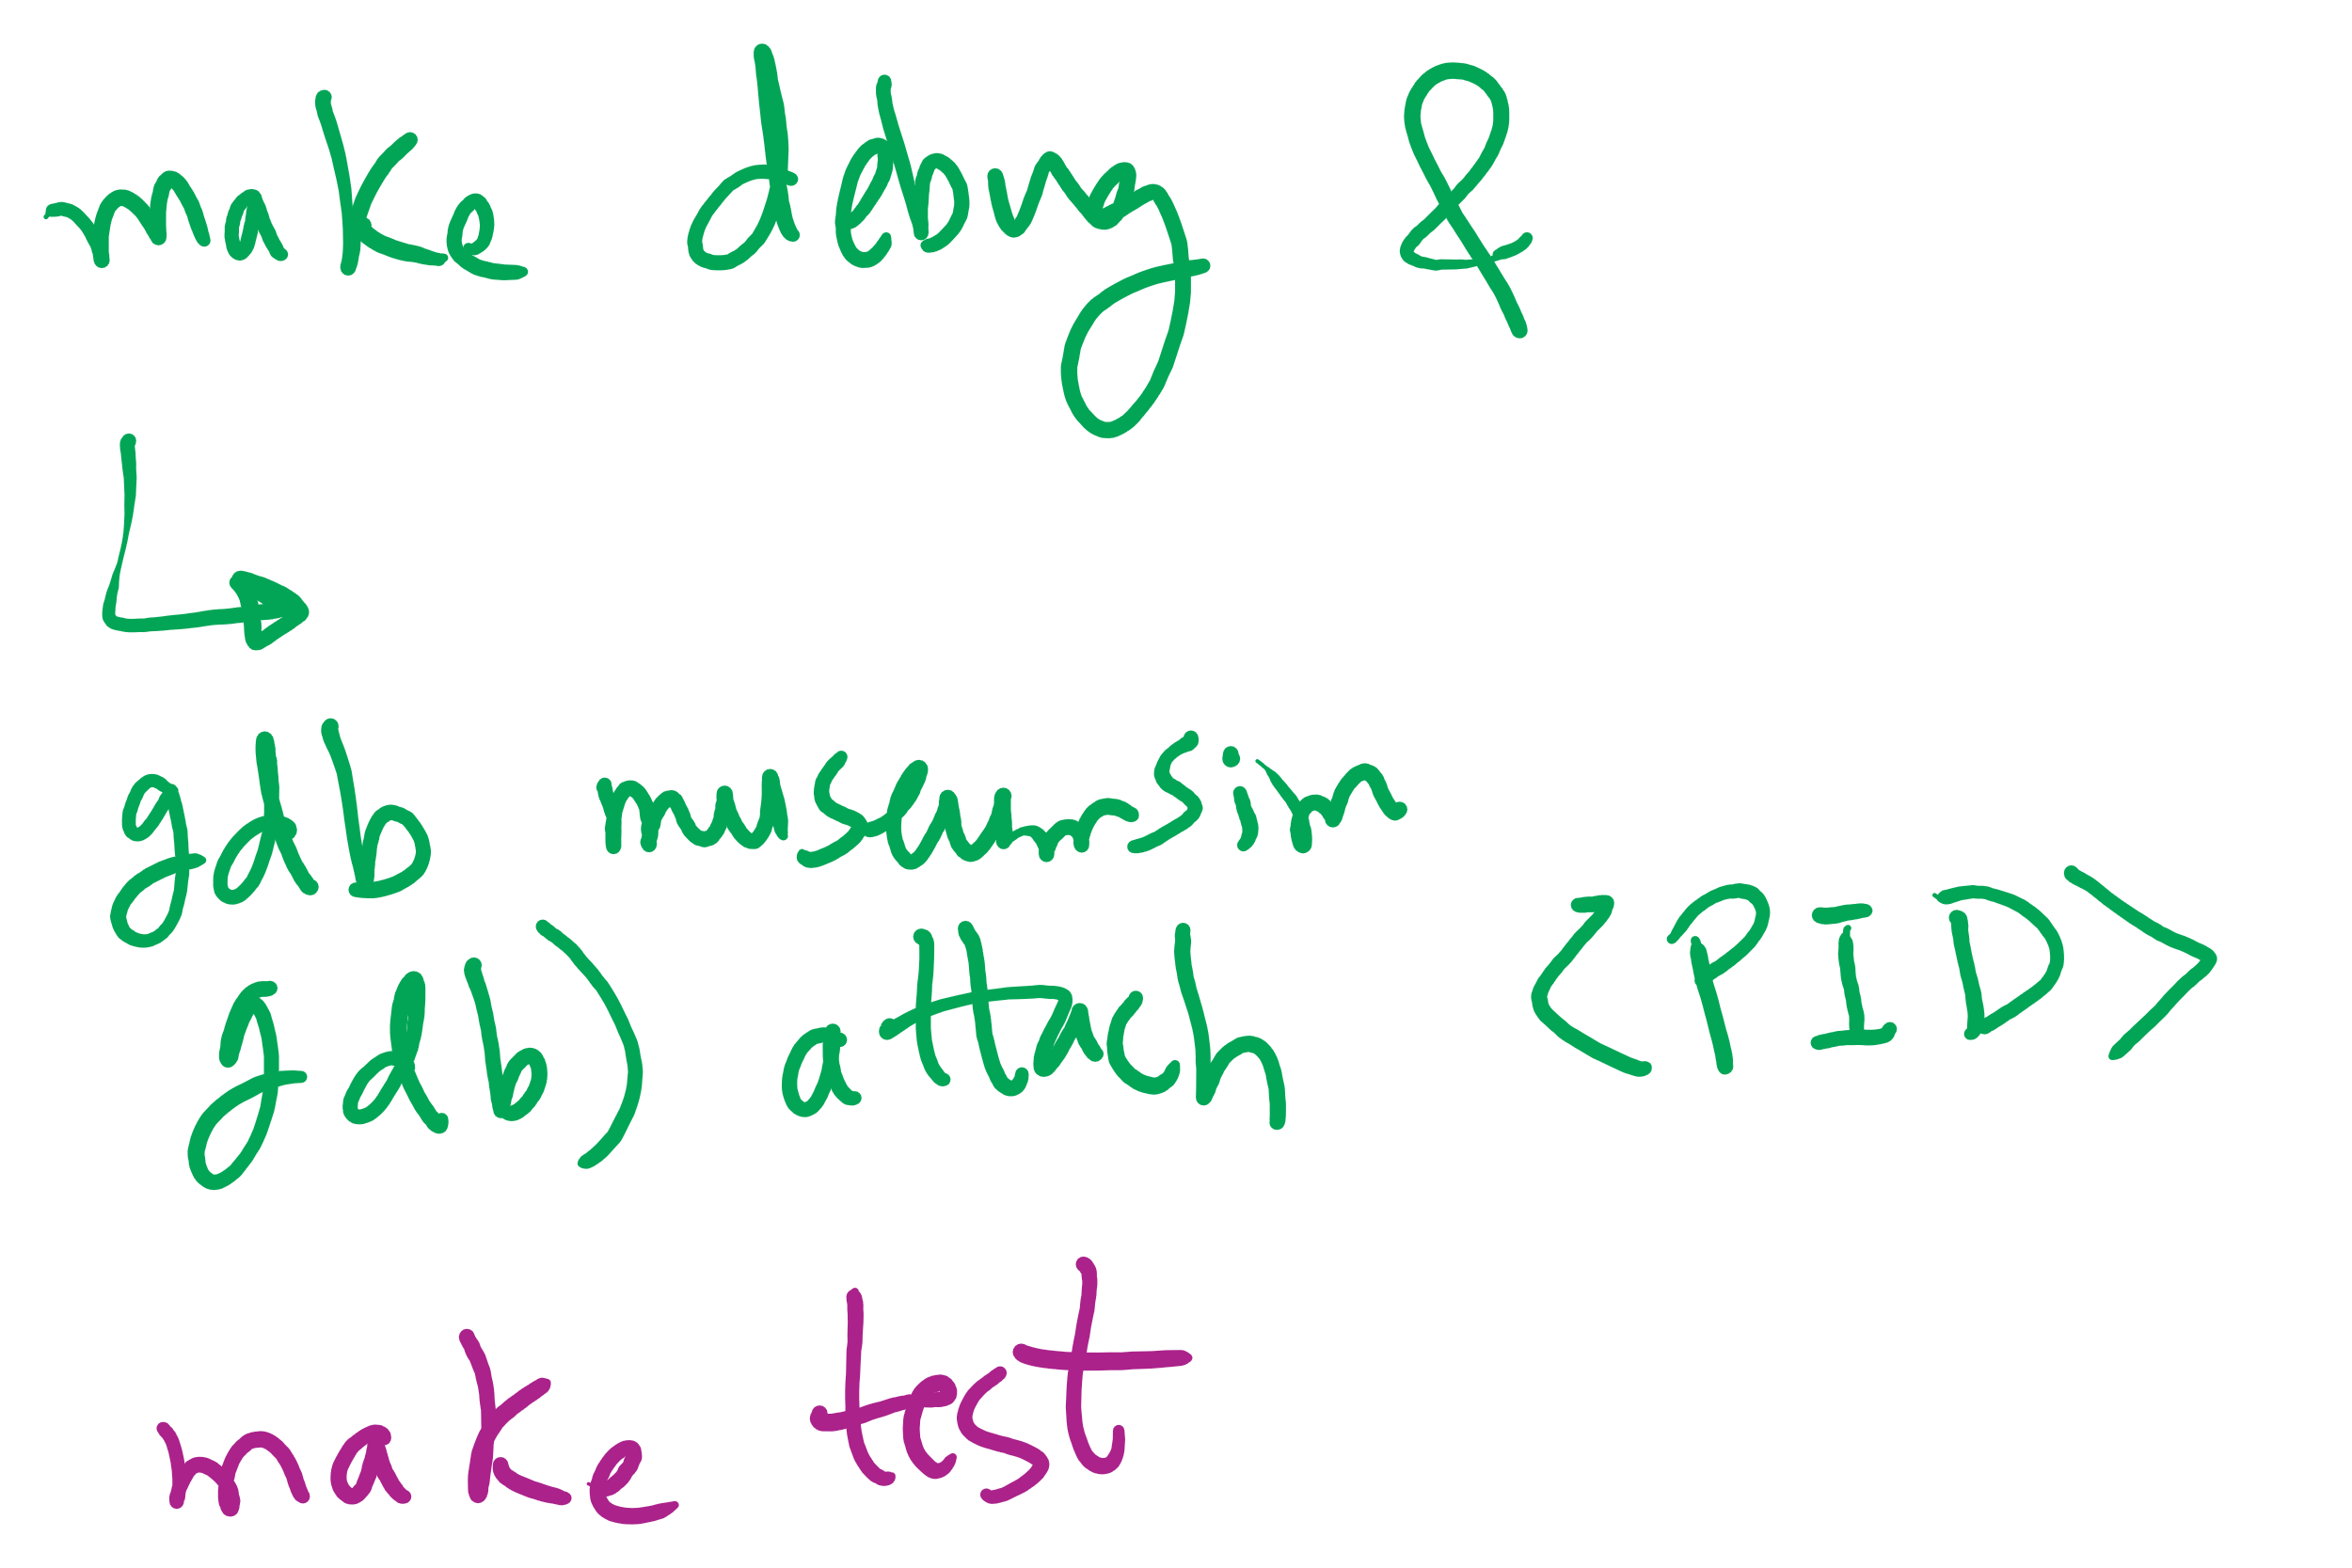 make debug &
gdb museumsim
gdb) attach <PID>
make test